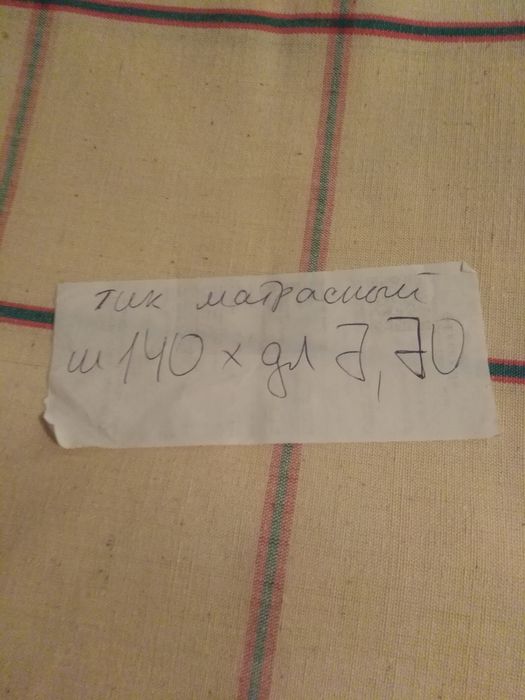 тик матрасный
ш 140 х дл 7,70